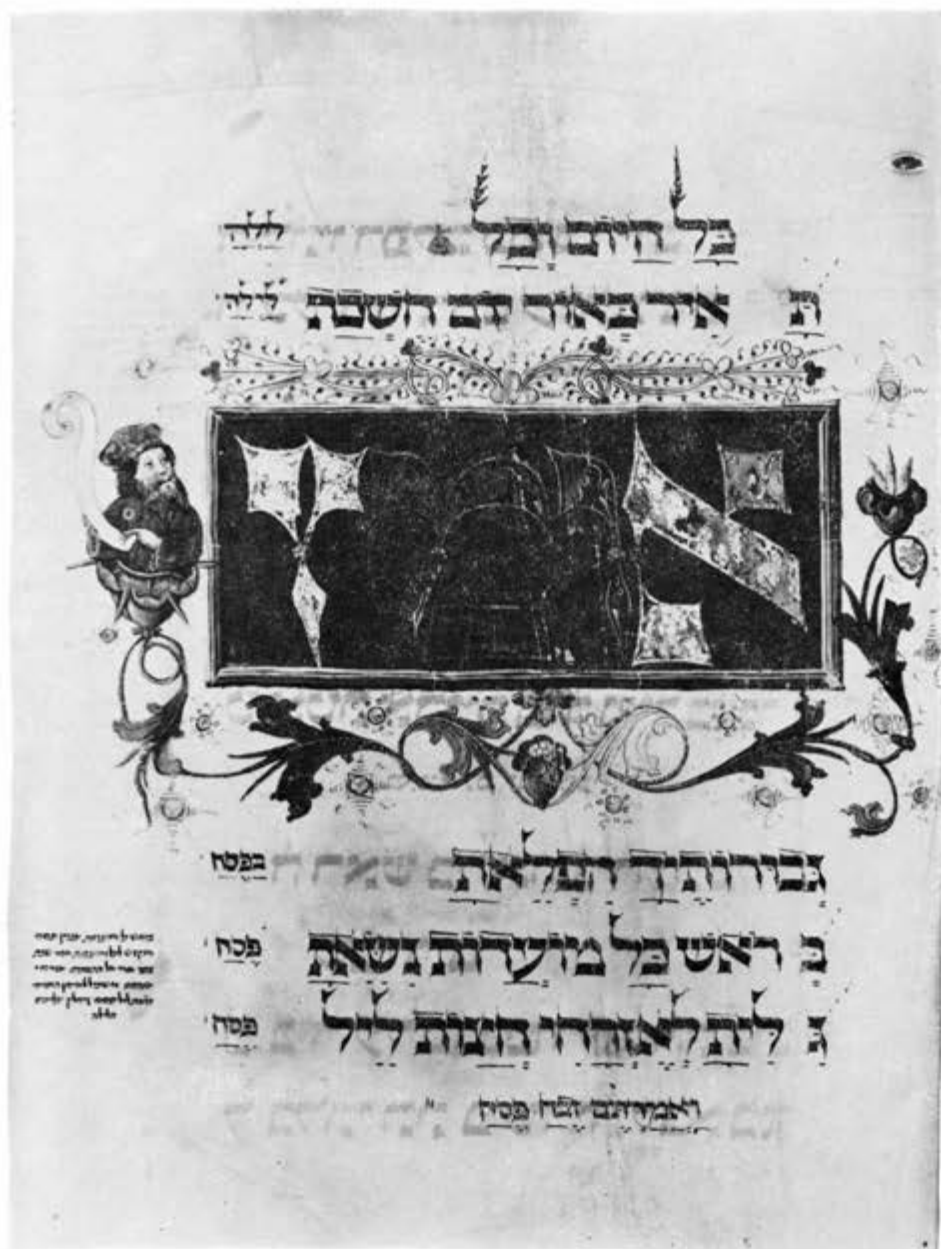 כל היום וכל לילה
ת איר כאור יום חשכת לילה
אומץ
גבורותיך הפלאת בפסח
ב ראש כל מועדות נשאת פסח
ג לית לאזרחי חצות ליל פסח
ואמרתם זבח פסח